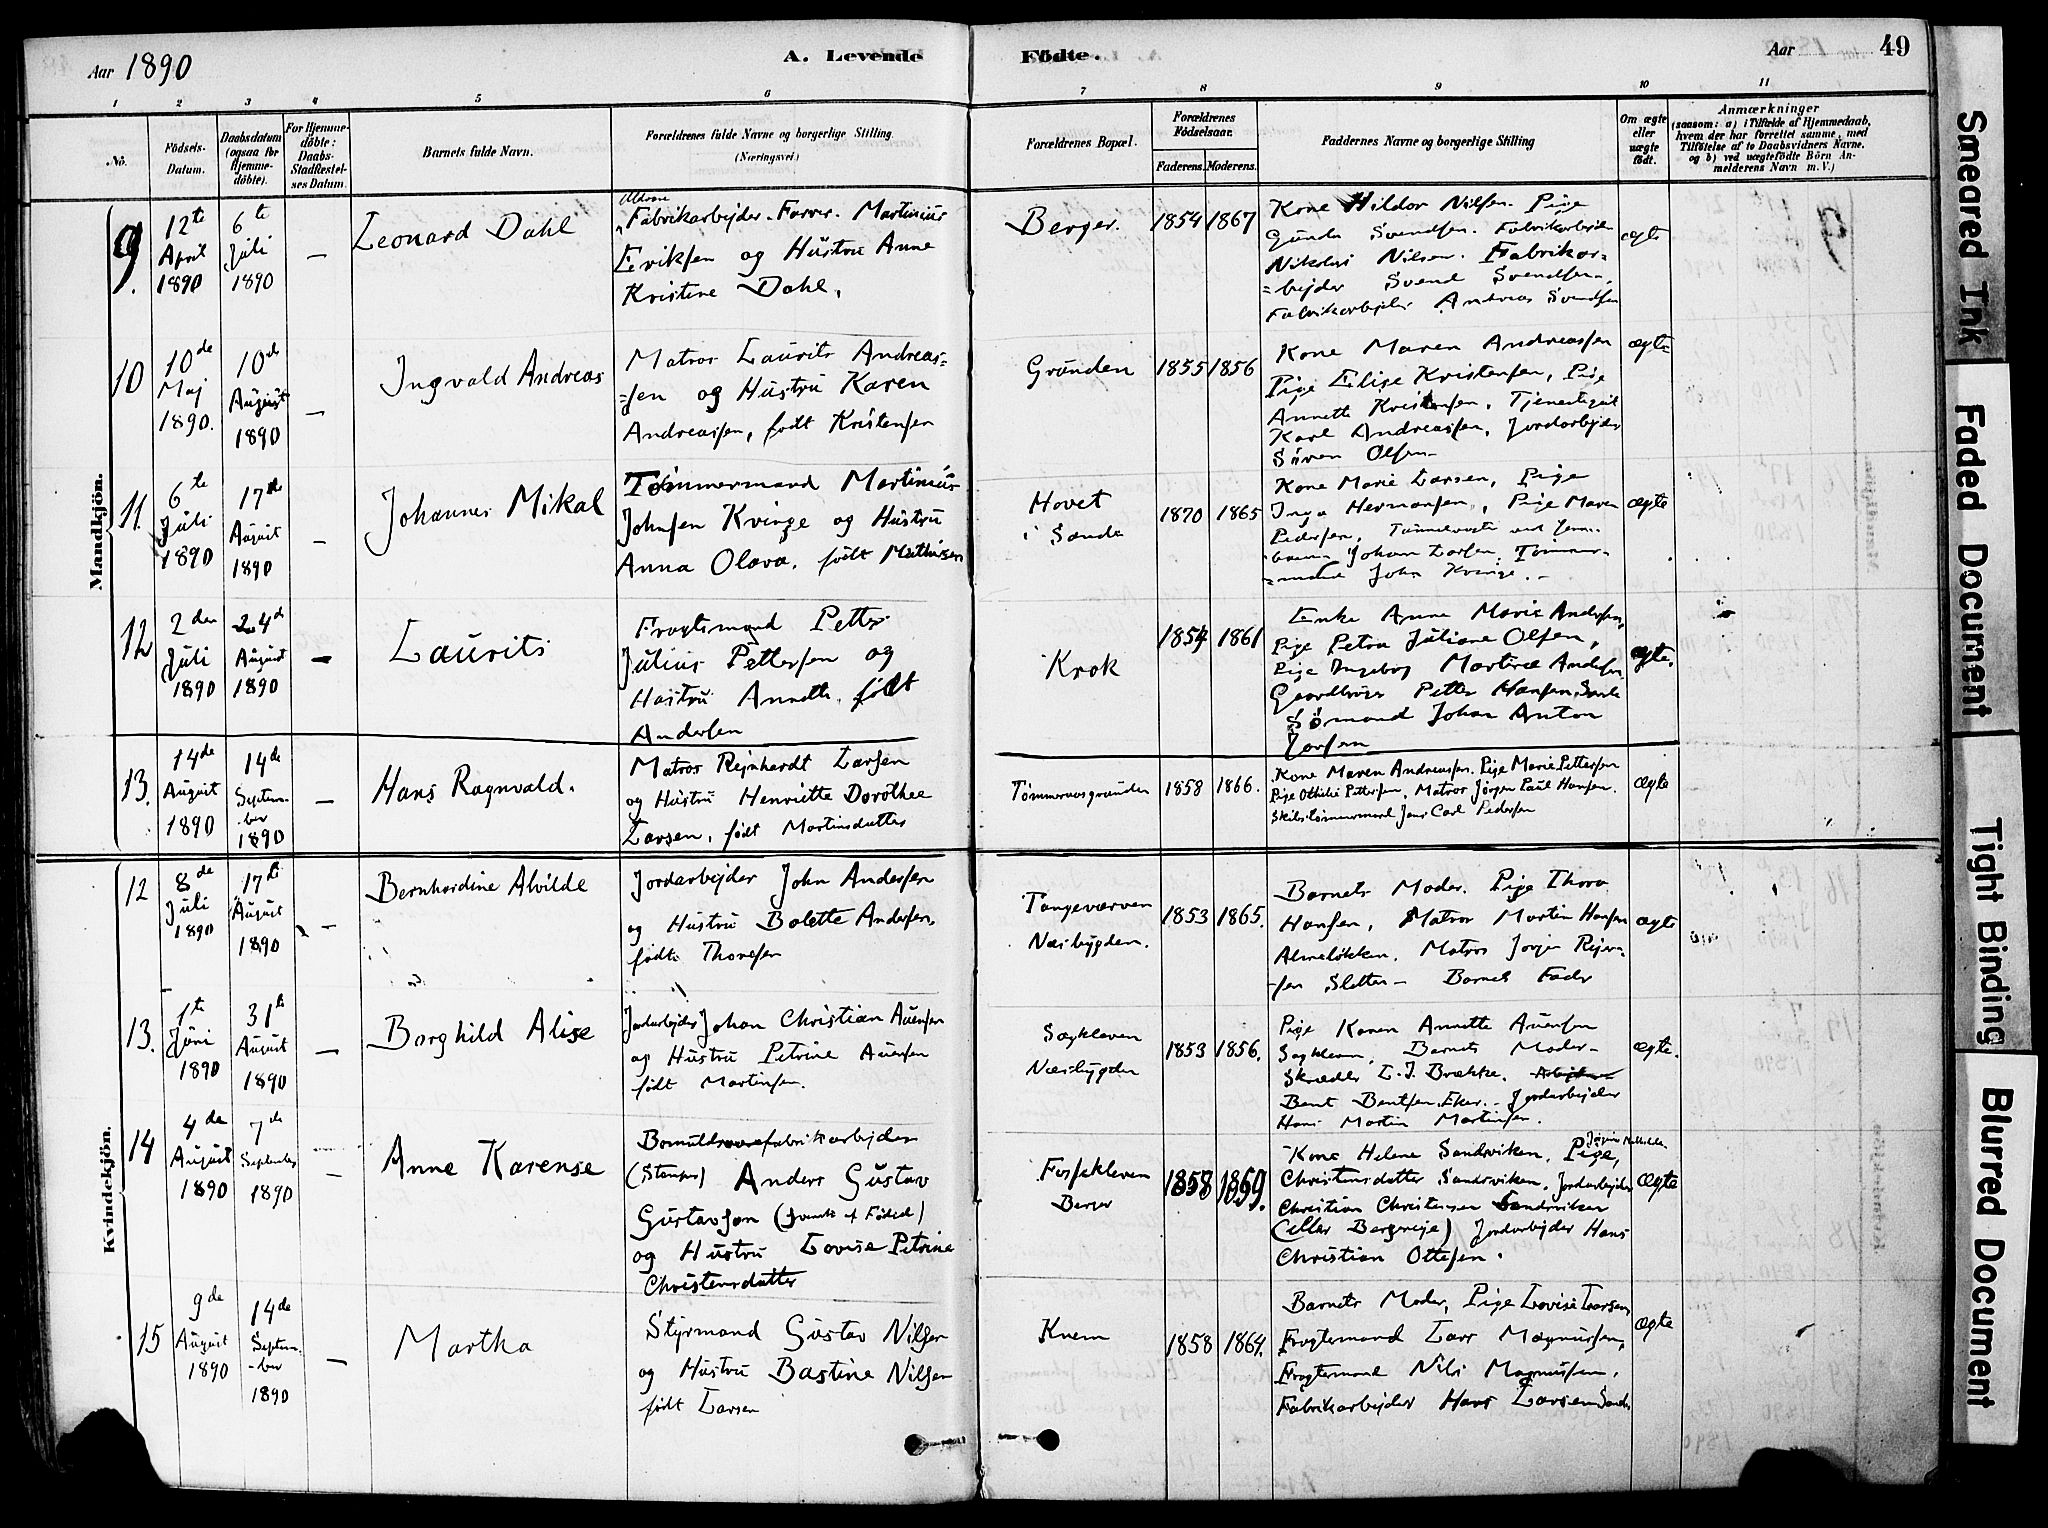 Aar 1890
A. Levende Födte.
Aar
49
1 2 3 4 5 6 7 8 9 10 11
No.
Födsels-
Datum.
Daabsdatum
(ogsaa for
Hjemme-
döbte).
For Hjemme-
döbte:
Daabs-
Stadfæstel-
ses Datum.
Barnets fulde Navn.
Forældrenes fulde Navne og borgerlige Stilling.
(Næringsvei.)
Forældrenes Bopæl.
Forældrenes
Födselsaar.
Faderens. Moderens.
Faddernes Navne og borgerlige Stilling
Om ægte
eller
uægte
födt.
Anmærkninger
(saasom: a) i Tilfælde af Hjemmedaab,
hvem der har forrettet samme, med
Tilföielse af to Daabsvidners Navne.
og b) ved uægtefödte Börn An-
melderens Navn m. V.)
Mandkjön.
9.
12te
April
1890
6te
Juli
1890
—
Leonard Dahl
Fabrikarbejder. Farver. Martinius
Eriksen og Hustru Anne
Kristine Dahl.
Berger.
1854 1867
Kone Hildor Nilsen. Pige
Gunda Svendsen. Fabrikarbejder
Nikolai Nilsen. Fabrikar-
=bejder Svend Svendsen.
Fabrikarbejder Andreas Svendsen
ægte
10
10de
Maj
1890.
10de
August
1890
—
Ingvald Andreas
Matros Laurits Andreas-
=sen og Hustru Karen
Andreassen, født Kristensen
Grunden
1855 1856
Kone Maren Andreassen
Pige Elise Kristensen, Pige
Annette Kristensen, Tjenestegut
Karl Andreassen, Jordarbejder
Sören Olsen
ægte
11.
6te
Juli
1890
17de
August
1890
—
Johannes Mikal
Tömmermand Martinius
Johnsen Kvinge og Hustru
Anna Olava, født Mathisen
Hovet
i Sande
1870 1865
Kone Marie Larsen, Pige
Inga Hermansen, Pige Maren
Pedersen,
Johan Larsen, Tömmer-
=mand John Kvinge.
ægte
12
2den
Juli
1890
24de
August
1890
—
Laurits
Fragtemand Petter
Julius Pettersen og
Hustru Annette, født
Andersen
Krok
1854 1861
Enke Anne Marie Andersen,
Pige Petra Juliane Olsen,
Pige Ingeborg Martine Andersen
Gaardbruger Petter Hansen, Sande
Sømand Johan Anton
ægte.
13.
14de
August
1890
14de
Septem-
ber
1890
—
Hans Ragnvald.
Matros Rejnhardt Larsen
og Hustru Henriette Dorothea
Larsen, født Martinsdatter
Tømmeraasgrunden
1858 1866.
Kone Maren Andreassen. Pige Marie Pettersen
Pige Othilie Pettersen, Matros Jörgen Paul Hansen.
Skibstømmermand Jens Carl Pedersen
ægte
Kvindekjön.
12
8de
Juli
1890
17de
August
1890
—
Bernhardine Alvilde
Jordarbejder John Andersen
og Hustru Bolette Andersen,
født Thoresen
Tangeværven
Næsbygden.
1853 1865.
Barnets Moder. Pige Thora
Hansen, Matros Martin Hansen
Almeløkken, Matros
Sletten — Barnets Fader
ægte
13.
1te
Juni
1890
31te
August
1890
—
Borghild Alise
Jordarbejder Johan Christian Auensen
og Hustru Petrine Auensen
født Martinsen.
Sagkleven
Næsbygden
1853 1856.
Pige Karen Annette Auensen
Sagkleven, Barnets Moder —
Skrædder L. J. Brække.
Bernt Bentsen Eker. Jordarbejder
Hans Martin Martinsen.
ægte.
14
4de
August
1890
7de
September
1890
—
Anne Karense
Bomuldsvarefabrikarbejder
(Stamper) Anders Gustav
Gustavson (svensk af Fødsel)
og Hustru Lovise Petrine
Christensdatter
Fossekleven
Berger
1858 1869.
Kone Helene Sandviken, Pige,
Christensdatter Sandviken, Jordarbejder
Christian Christensen Sandviken
(eller Bergseje) Jordarbejder Hans
Christian Ottesen.
ægte
15
9de
August
1890
14de
Septem-
-ber
1890
—
Martha
Styrmand Gustav Nilsen
og Hustru Bastine Nilsen
født Larsen
Knem
1858 1864.
Barnets Moder, Pige Lovise Larsen,
Fragtemand Lars Magnussen,
Fragtemand Nils Magnussen,
Fabrikarbejder Hans Larsen Sande
ægte
Smeared Ink
Faded Document
Tight Binding
Blurred Document